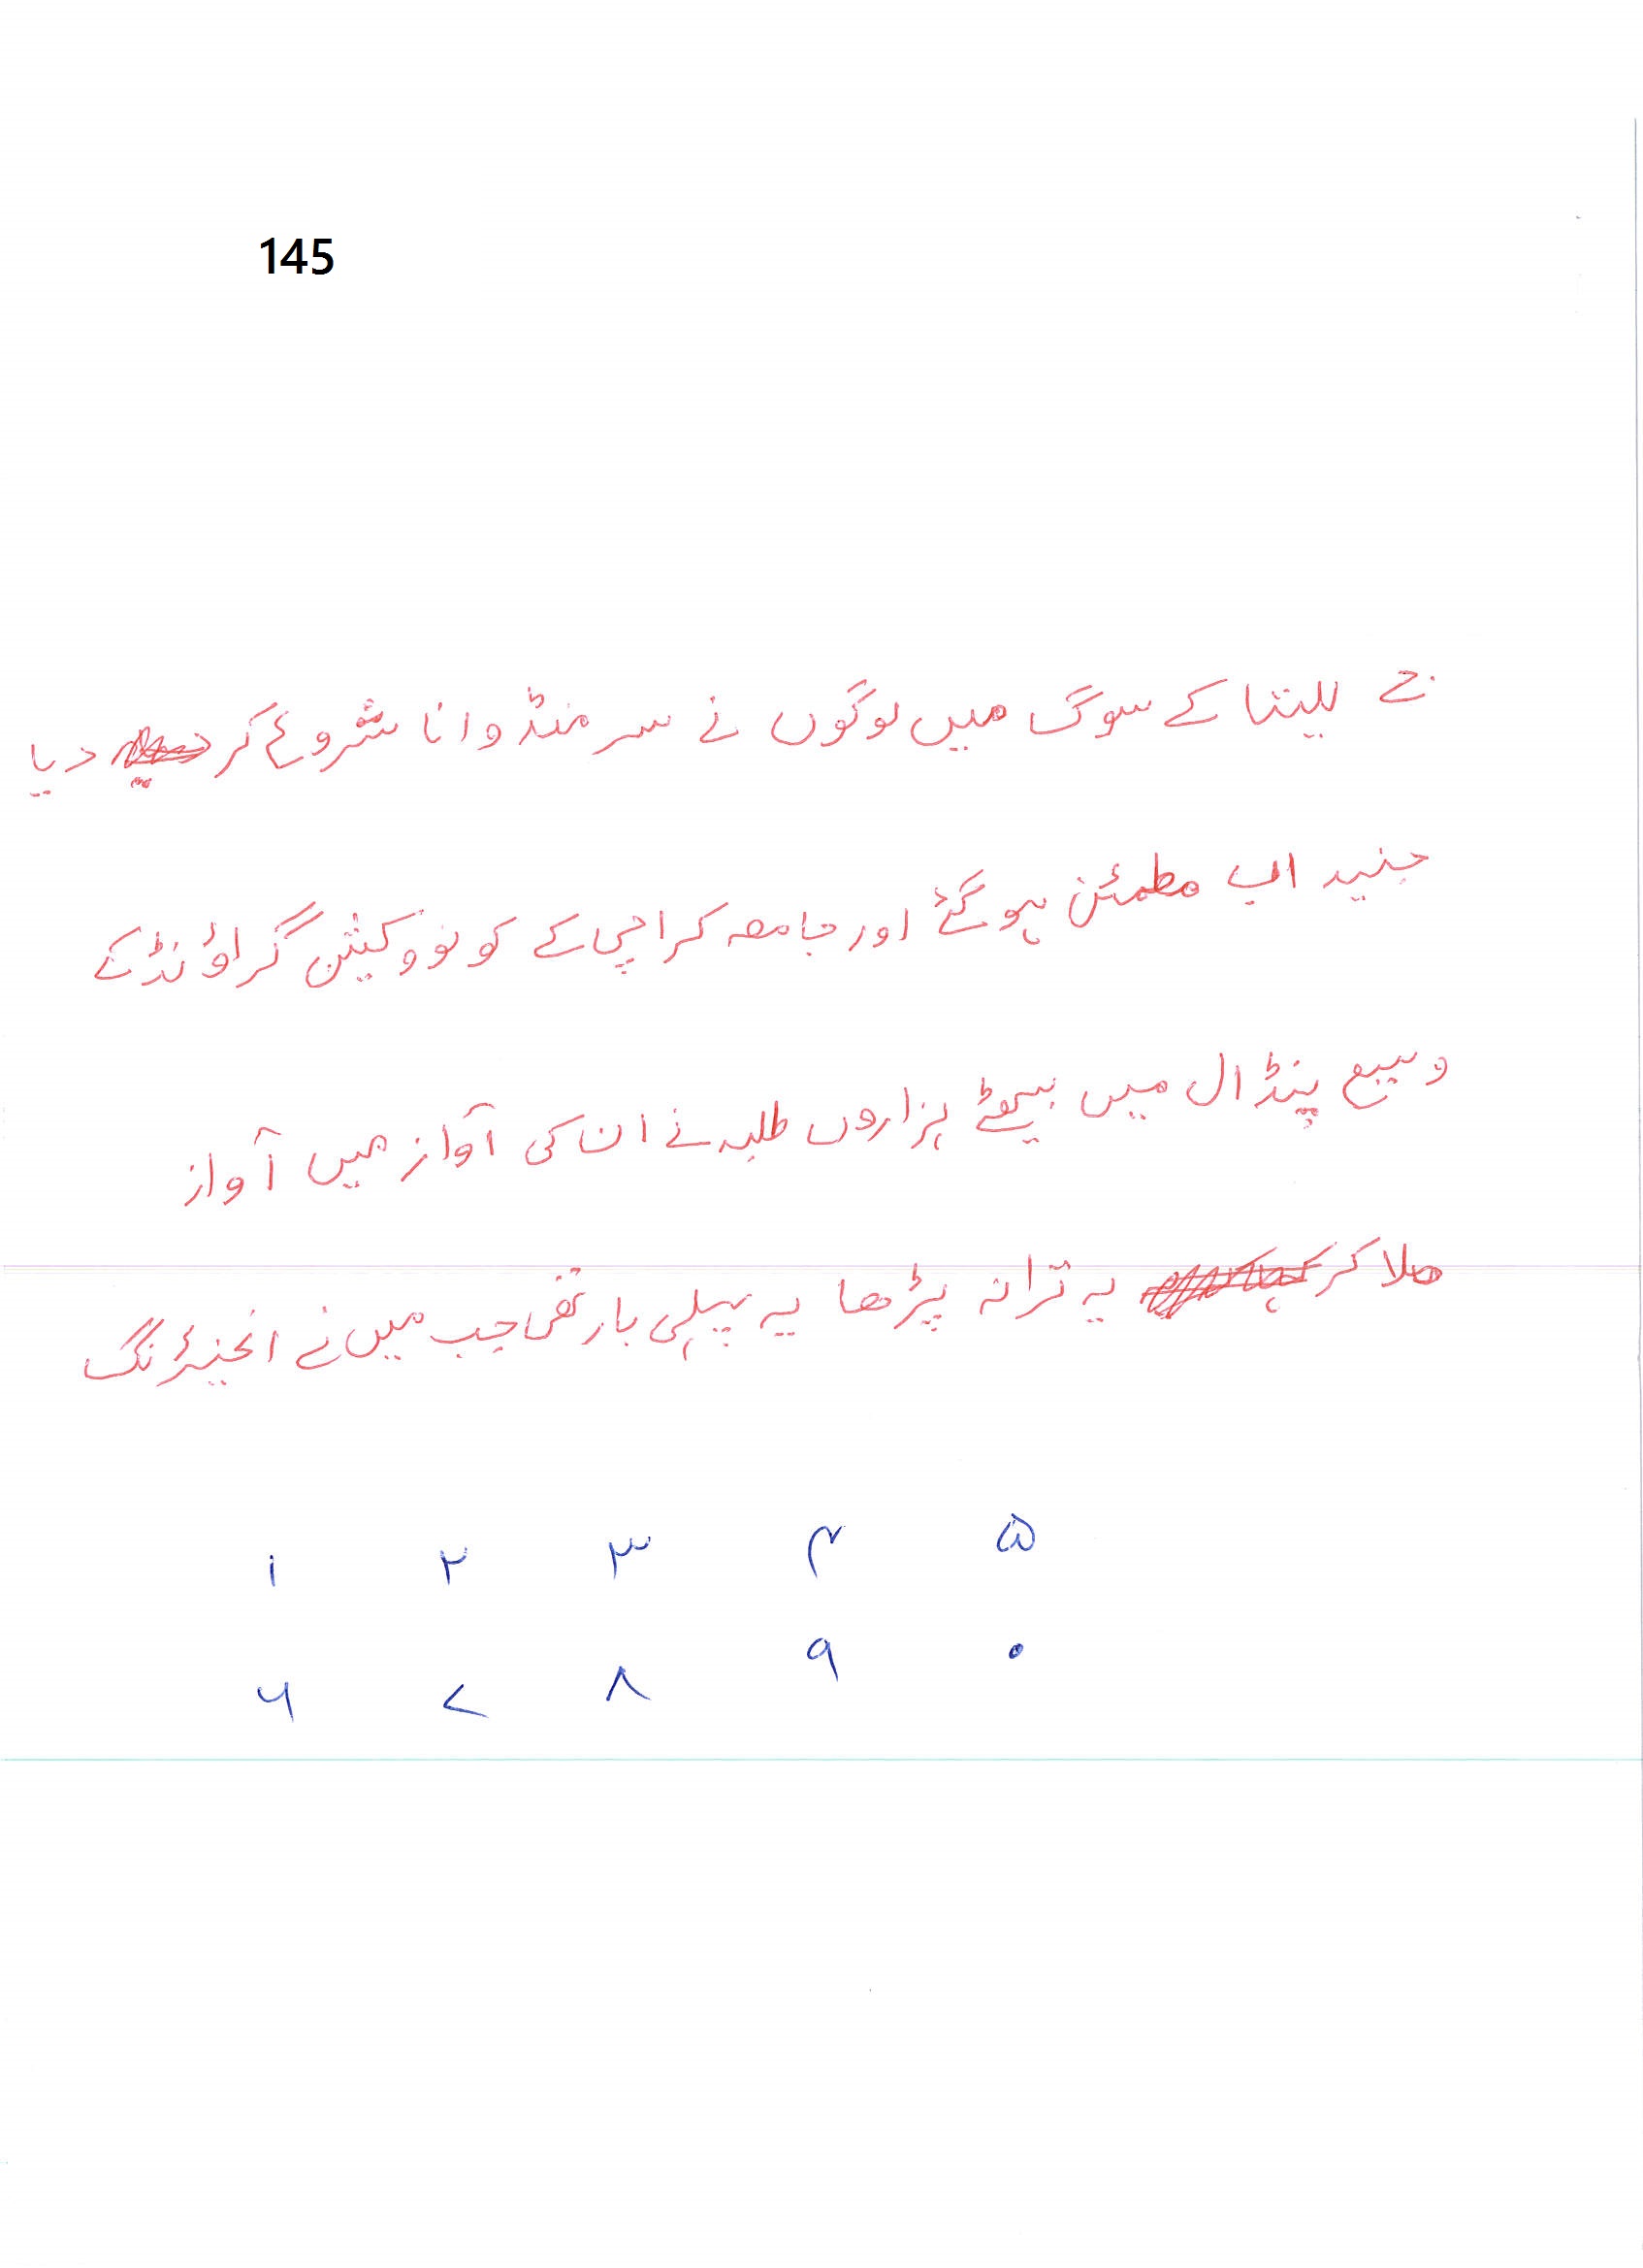 145
جے للیتا کے سوگ میں لوگوں نے سر منڈوانا شروع کر دیا
جنید اب مطمئن ہو گئے اور جامعہ کراچی کے کونووکیشن گراؤنڈ کے
وسیع پنڈال میں بیٹھے ہزاروں طلبہ نے ان کی آواز میں آواز
ملا کر یہ ترانہ پڑھا یہ پہلی بار تھی جب میں نے انجنیئرنگ
۱ ۲ ۳ ۴ ۵
۶ ۷ ۸ ۹ ۰